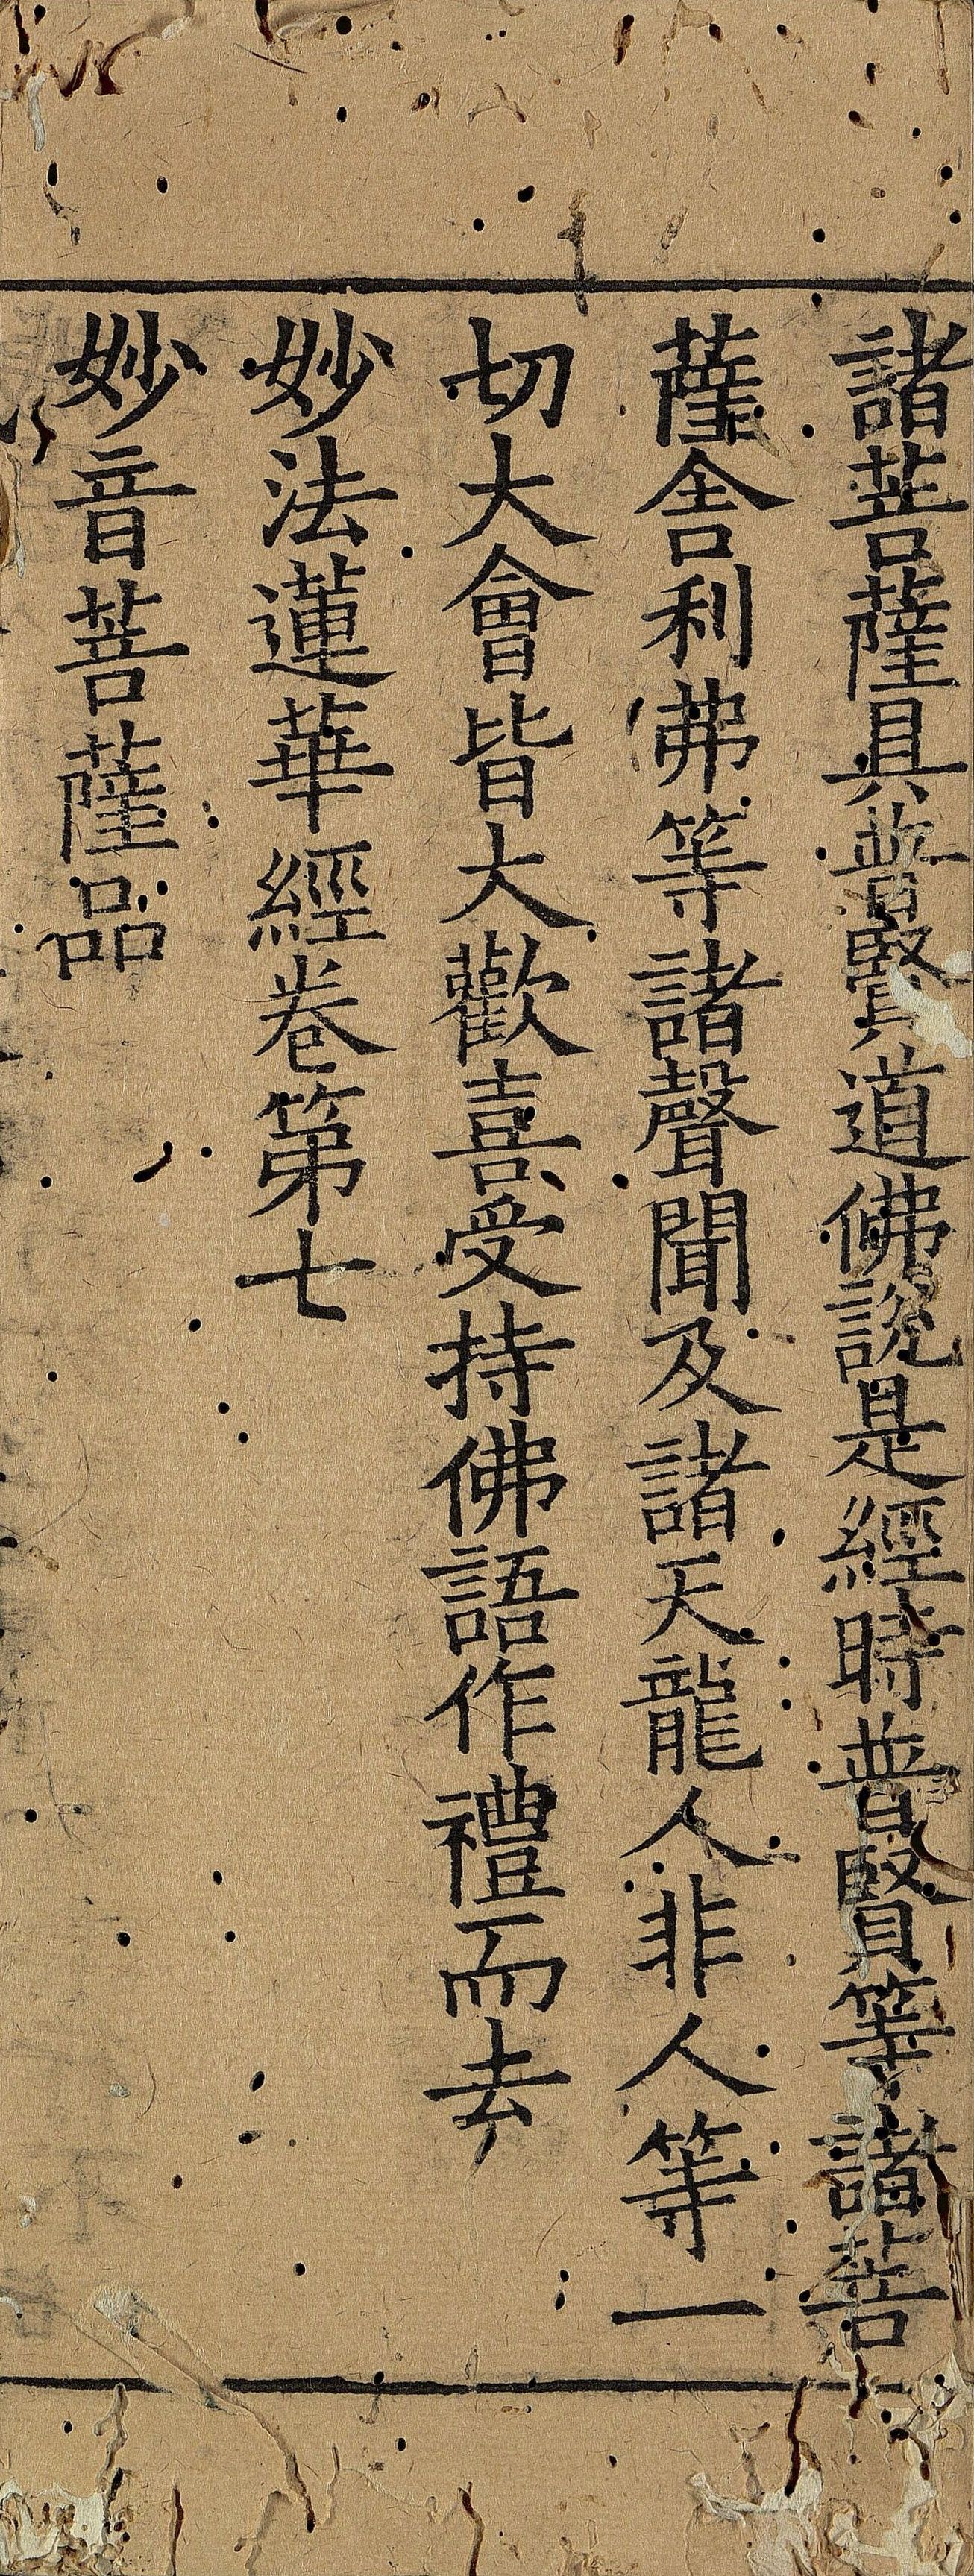 諸菩薩具普賢道佛說是經時普賢等諸菩
薩舍利弗等諸聲聞及諸天龍人非人等一
切大會皆大歡喜受持佛語作禮而去
妙法蓮華經卷第七
妙音菩薩品